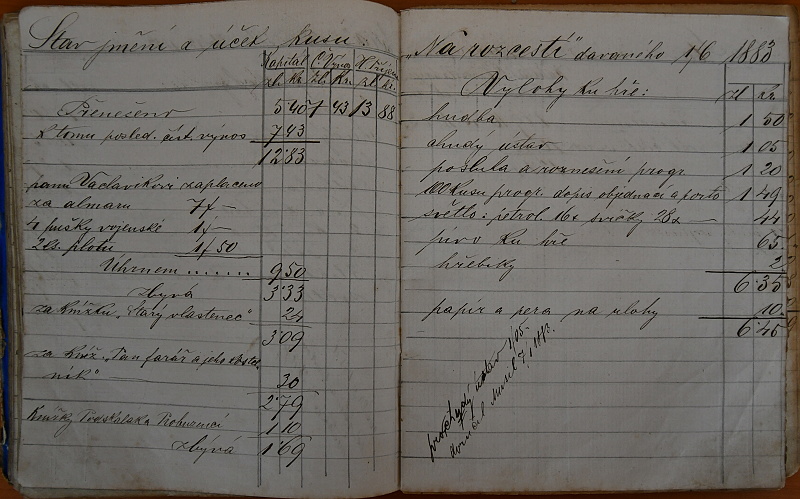 Stav jmění a účet kusu:
Kapitál Č. Výnos
zl. kr. zl. kr. zl. kr.
Přenešeno 5 40 7 43 13 88
k tomu posled. čist. výnos 7 43
12 83
panu Václavíkovi zaplaceno
za almaru 7 –
4 pušky vojenské 1 –
2 ks. plotu 1/50
Úhrnem ....... 9 50
zbývá 3 33
za knížku „Starý vlastenec" 24
3 09
za kníž. „Pan farář a jeho
ník" 30
2 79
Knížky Podskalák a 1 10
zbývá 1 69
„Na rozcestí" davaného 1/6 1883
Výlohy ku hře: zl. kr.
hudba 1 50
chudý ústav 1 05
posluha a roznesení progr. 1 20
100 kusů progr. dopis objednací a porto 1 49
světlo: petrol 16x svíčky 28x 44
pivo ku hře 65
hřebíky 2
6 35
papír a pera na úlohy 10
6 45
pro chudý ústav 1/05.